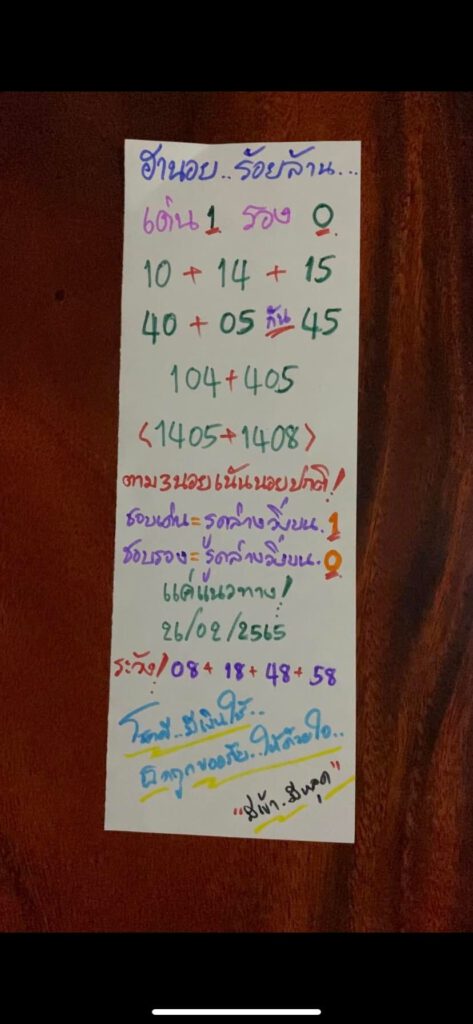 ฮานอย..ร้อยล้าน...
เด่น 1 รอง 0
10 + 14 + 15
40 + 05 กัน 45
104+405
<1405+1408>
ตาม3นอยเน้นนอยปกติ!
ชอบเด่น=รูดล่างวิ่งบน.1
ชอบรอง=รูดล่างวิ่งบน.0
แค่แนวทาง!
26/02/2565
ระวัง! 08+18+48+58
โชคดี..มีเงินใช้..
ผิดถูกขออภัย..ให้ด้วยใจ..
"มีเข้า.มีหลุด"